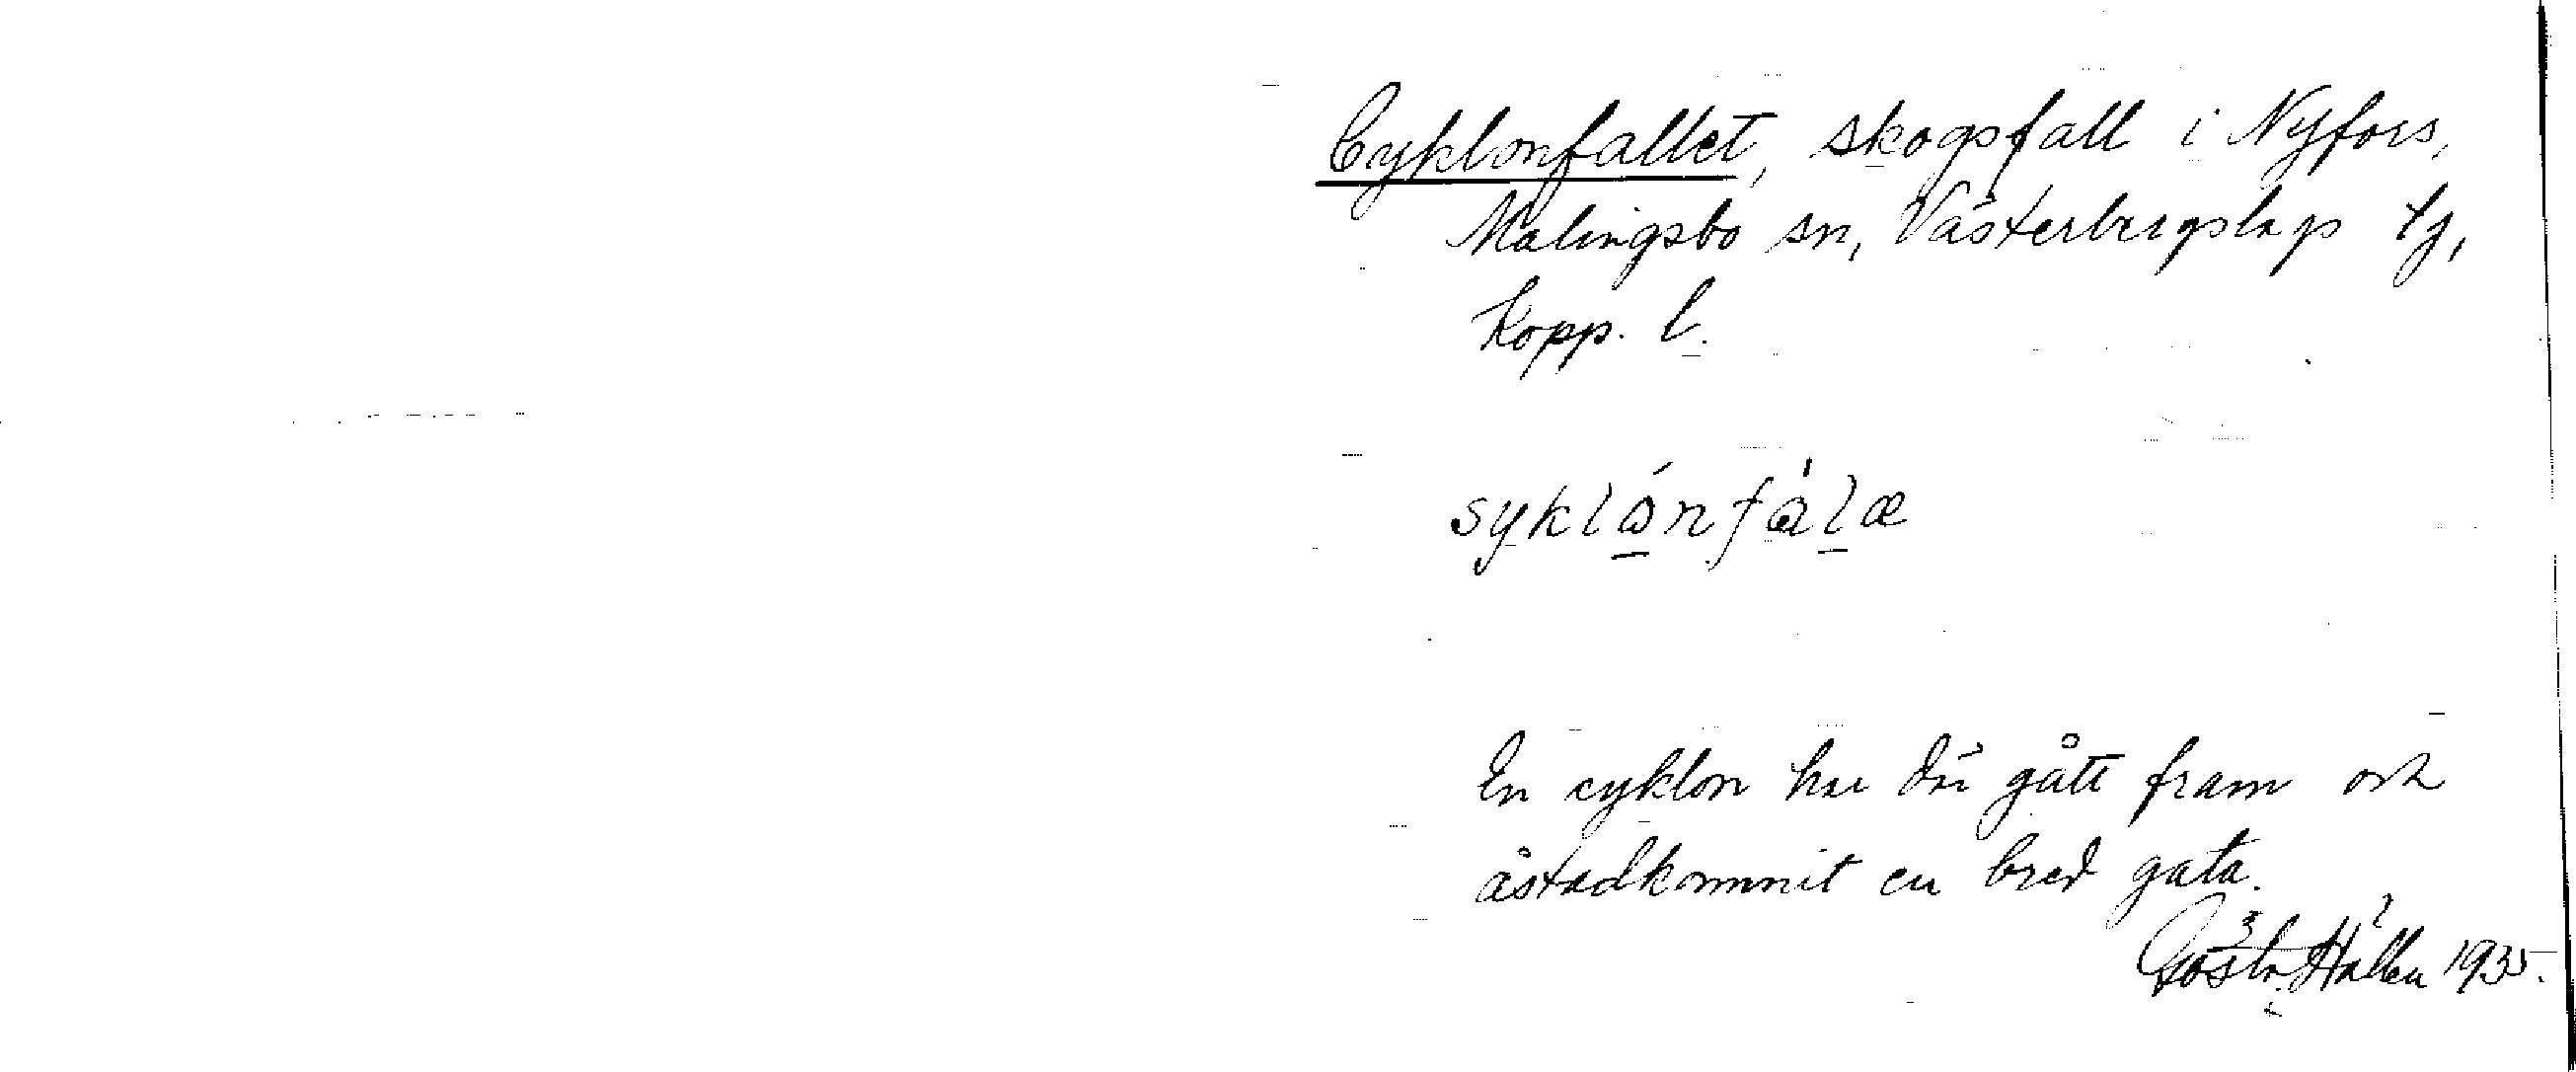 Cyklonfallet, skogsfall i Nyfors,
Malingsbo sn, Västerbergslags tg,
Kopp. l.
syklónfàlæ
En cyklon har där gått fram och
åstadkommit en bred gata.
Gösta Hallen 1935.